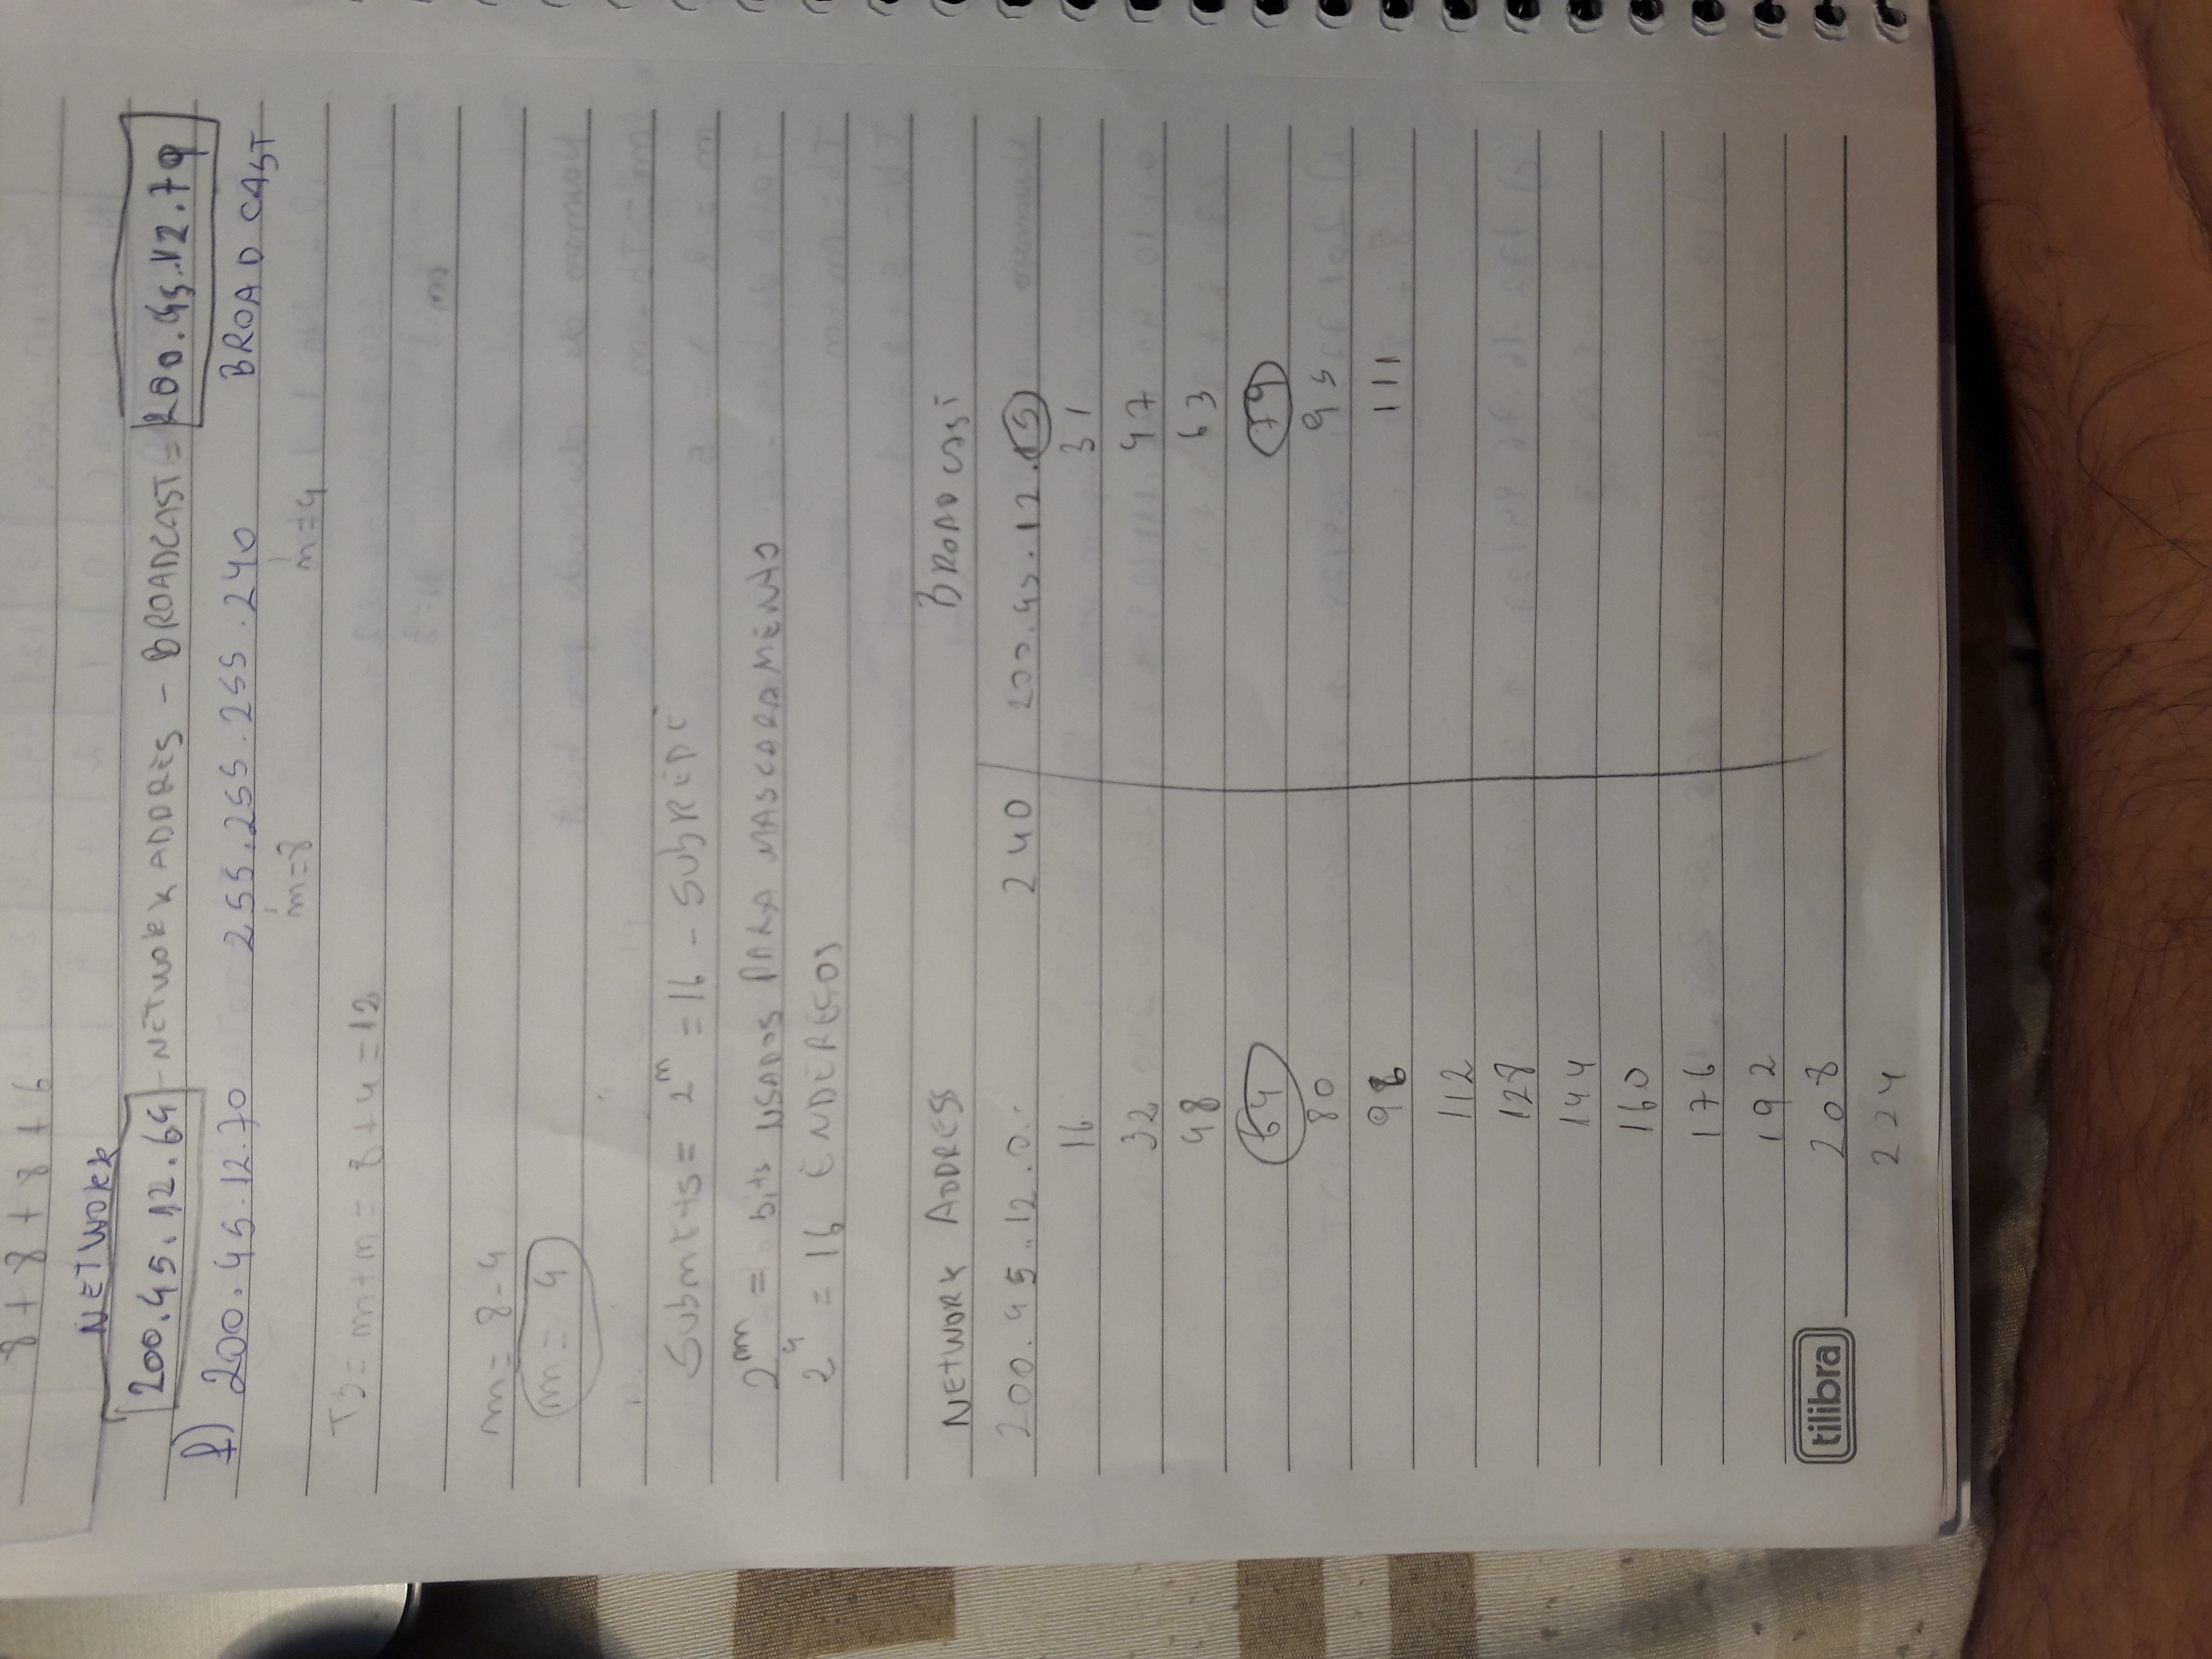 8 + 8 + 8 + 6
NETWORK
200.45.12.64 - NETWORK ADDRES - BROADCAST = 200.45.12.79
f) 200.45.12.70 255.255.255.240 BROADCAST
m=8 n=4
Tb = m+n = 8+4 = 12
m = 8-4
m = 4
Subnets = 2^n = 16 - SUBREDE
2^m = bits USADOS PARA MASCARAMENTO
2^4 = 16 ENDEREÇOS
NETWORK ADDRESS BROADCAST
200.45.12.0. 240 200.45.12.15
16 31
32 47
48 63
64 79
80 95
96 111
112
128
144
160
176
192
tilibra
208
224